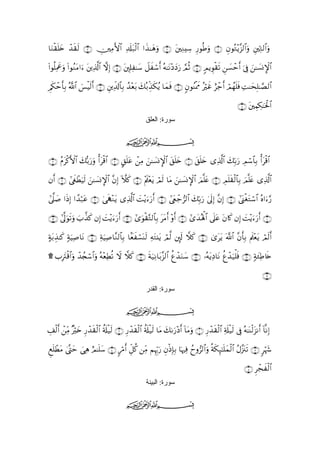 وَٱلتِّينِ وَٱلزَّيْتُونِ ۝ وَطُورِ سِينِينَ ۝ وَهَٰذَا ٱلْبَلَدِ ٱلْأَمِينِ ۝ لَقَدْ خَلَقْنَا
ٱلْإِنسَٰنَ فِىٓ أَحْسَنِ تَقْوِيمٍ ۝ ثُمَّ رَدَدْنَٰهُ أَسْفَلَ سَٰفِلِينَ ۝ إِلَّا ٱلَّذِينَ ءَامَنُوا۟ وَعَمِلُوا۟
ٱلصَّٰلِحَٰتِ فَلَهُمْ أَجْرٌ غَيْرُ مَمْنُونٍ ۝ فَمَا يُكَذِّبُكَ بَعْدُ بِٱلدِّينِ ۝ أَلَيْسَ ٱللَّهُ بِأَحْكَمِ
ٱلْحَٰكِمِينَ ۝
سورة: العلق
﷽
ٱقْرَأْ بِٱسْمِ رَبِّكَ ٱلَّذِى خَلَقَ ۝ خَلَقَ ٱلْإِنسَٰنَ مِنْ عَلَقٍ ۝ ٱقْرَأْ وَرَبُّكَ ٱلْأَكْرَمُ ۝
ٱلَّذِى عَلَّمَ بِٱلْقَلَمِ ۝ عَلَّمَ ٱلْإِنسَٰنَ مَا لَمْ يَعْلَمْ ۝ كَلَّآ إِنَّ ٱلْإِنسَٰنَ لَيَطْغَىٰٓ ۝ أَن
رَّءَاهُ ٱسْتَغْنَىٰٓ ۝ إِنَّ إِلَىٰ رَبِّكَ ٱلرُّجْعَىٰٓ ۝ أَرَءَيْتَ ٱلَّذِى يَنْهَىٰ ۝ عَبْدًا إِذَا صَلَّىٰٓ ۝
أَرَءَيْتَ إِن كَانَ عَلَى ٱلْهُدَىٰٓ ۝ أَوْ أَمَرَ بِٱلتَّقْوَىٰٓ ۝ أَرَءَيْتَ إِن كَذَّبَ وَتَوَلَّىٰٓ ۝
أَلَمْ يَعْلَم بِأَنَّ ٱللَّهَ يَرَىٰ ۝ كَلَّا لَئِن لَّمْ يَنتَهِ لَنَسْفَعًۢا بِٱلنَّاصِيَةِ ۝ نَاصِيَةٍ كَٰذِبَةٍ
خَاطِئَةٍ ۝ فَلْيَدْعُ نَادِيَهُۥ ۝ سَنَدْعُ ٱلزَّبَانِيَةَ ۝ كَلَّا لَا تُطِعْهُ وَٱسْجُدْ وَٱقْتَرِب ۩
۝
سورة: القدر
﷽
إِنَّآ أَنزَلْنَٰهُ فِى لَيْلَةِ ٱلْقَدْرِ ۝ وَمَآ أَدْرَىٰكَ مَا لَيْلَةُ ٱلْقَدْرِ ۝ لَيْلَةُ ٱلْقَدْرِ خَيْرٌ مِّنْ أَلْفِ
شَهْرٍ ۝ تَنَزَّلُ ٱلْمَلَٰٓئِكَةُ وَٱلرُّوحُ فِيهَا بِإِذْنِ رَبِّهِم مِّن كُلِّ أَمْرٍ ۝ سَلَٰمٌ هِىَ حَتَّىٰ مَطْلَعِ
ٱلْفَجْرِ ۝
سورة: البينة
﷽